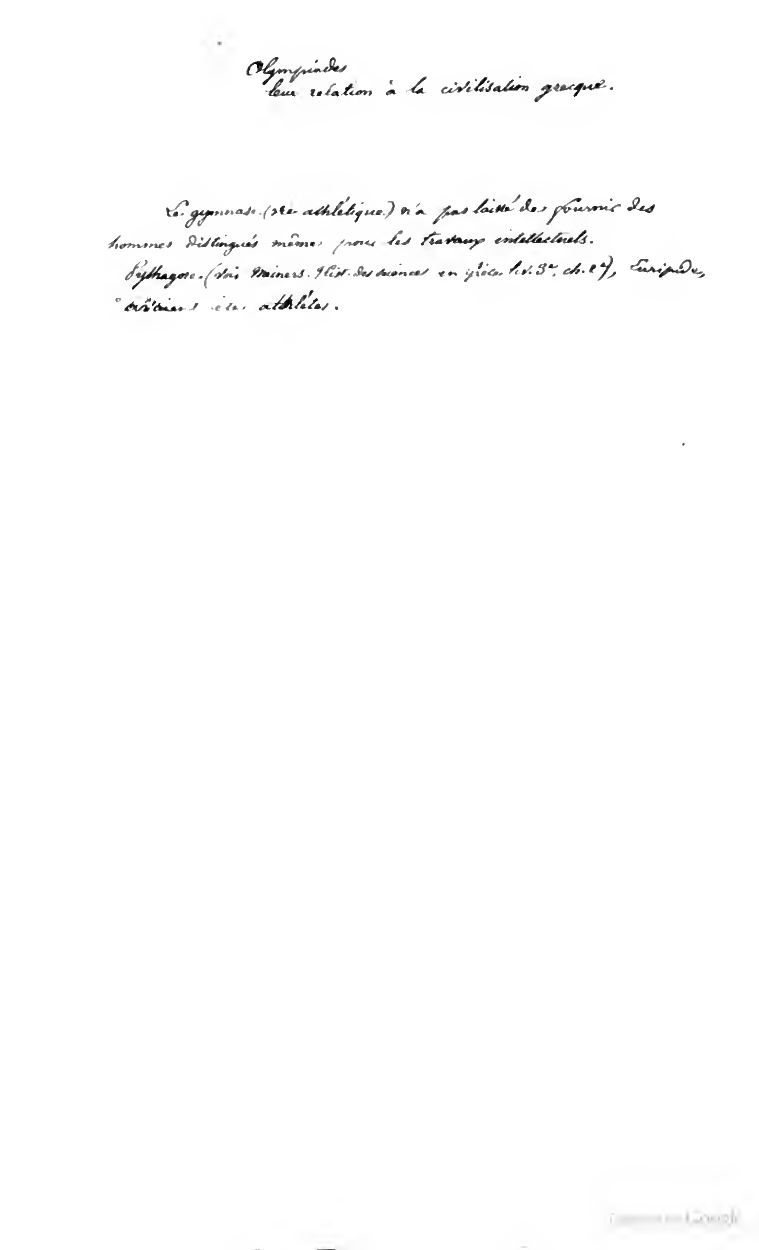 Olympiades
leur relation à la civilisation grecque.
Le gymnase (vie athlétique) n'a pas laissé de fournir des
hommes distingués même pour les travaux intellectuels.
Pythagore (Voir Meiners. Hist. des sciences en grèce liv. 3e, ch. 2e), Euripide,
avaient été athlètes.
Google